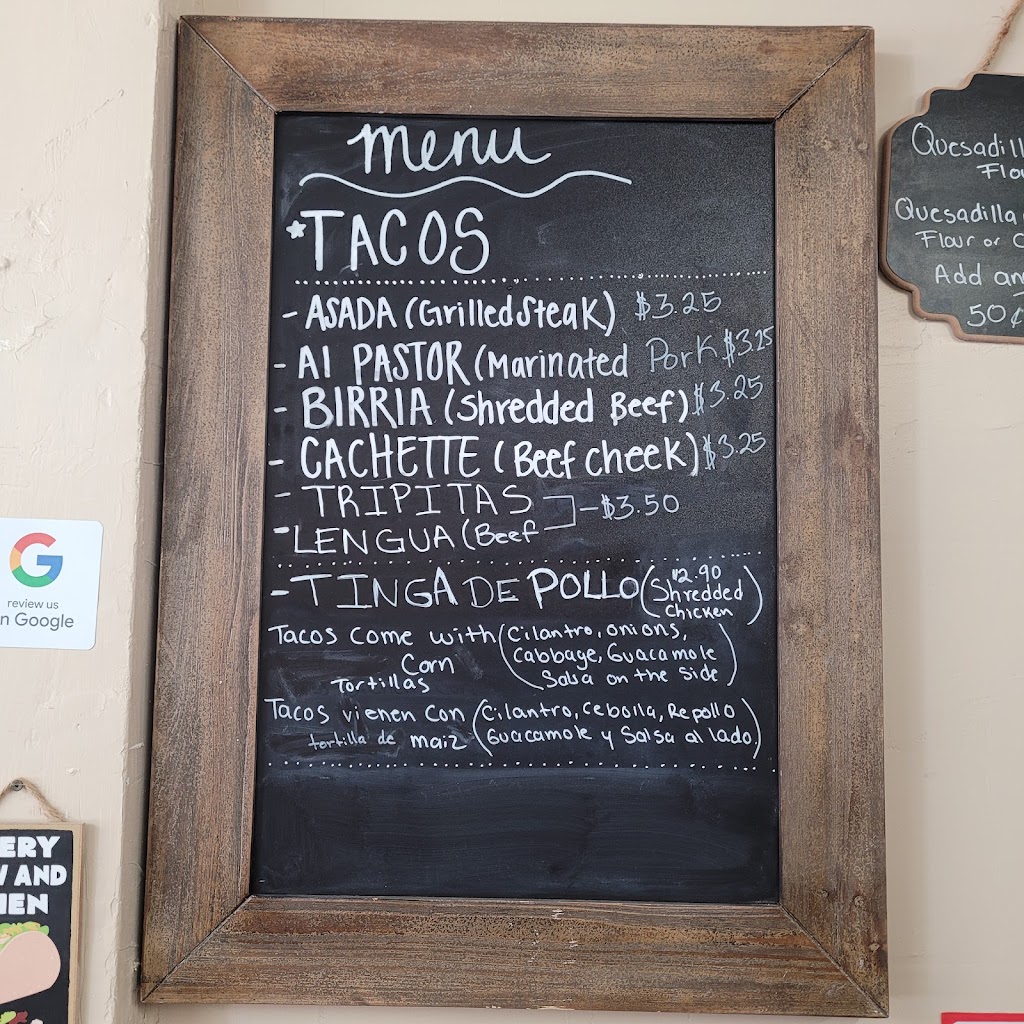 menu
*TACOS
- ASADA (Grilled Steak) $3.25
- Al PASTOR (Marinated Pork $3.25
- BIRRIA (Shredded Beef) $3.25
- CACHETTE (Beef cheek) $3.25
- TRIPITAS
- LENGUA (Beef
- $3.50
- TINGA DE POLLO ($2.90
Shredded
Chicken)
Tacos come with (Cilantro, onions,
Corn
Tortillas
Cabbage, Guacamole
Salsa on the side)
Tacos vienen con (Cilantro, cebolla, Repollo
tortilla de maiz
Guacamole y Salsa al lado.)
Quesadill
Flou
Quesadilla
Flour or C
Add an
50¢
G
review us
n Google
ERY
AND
EN